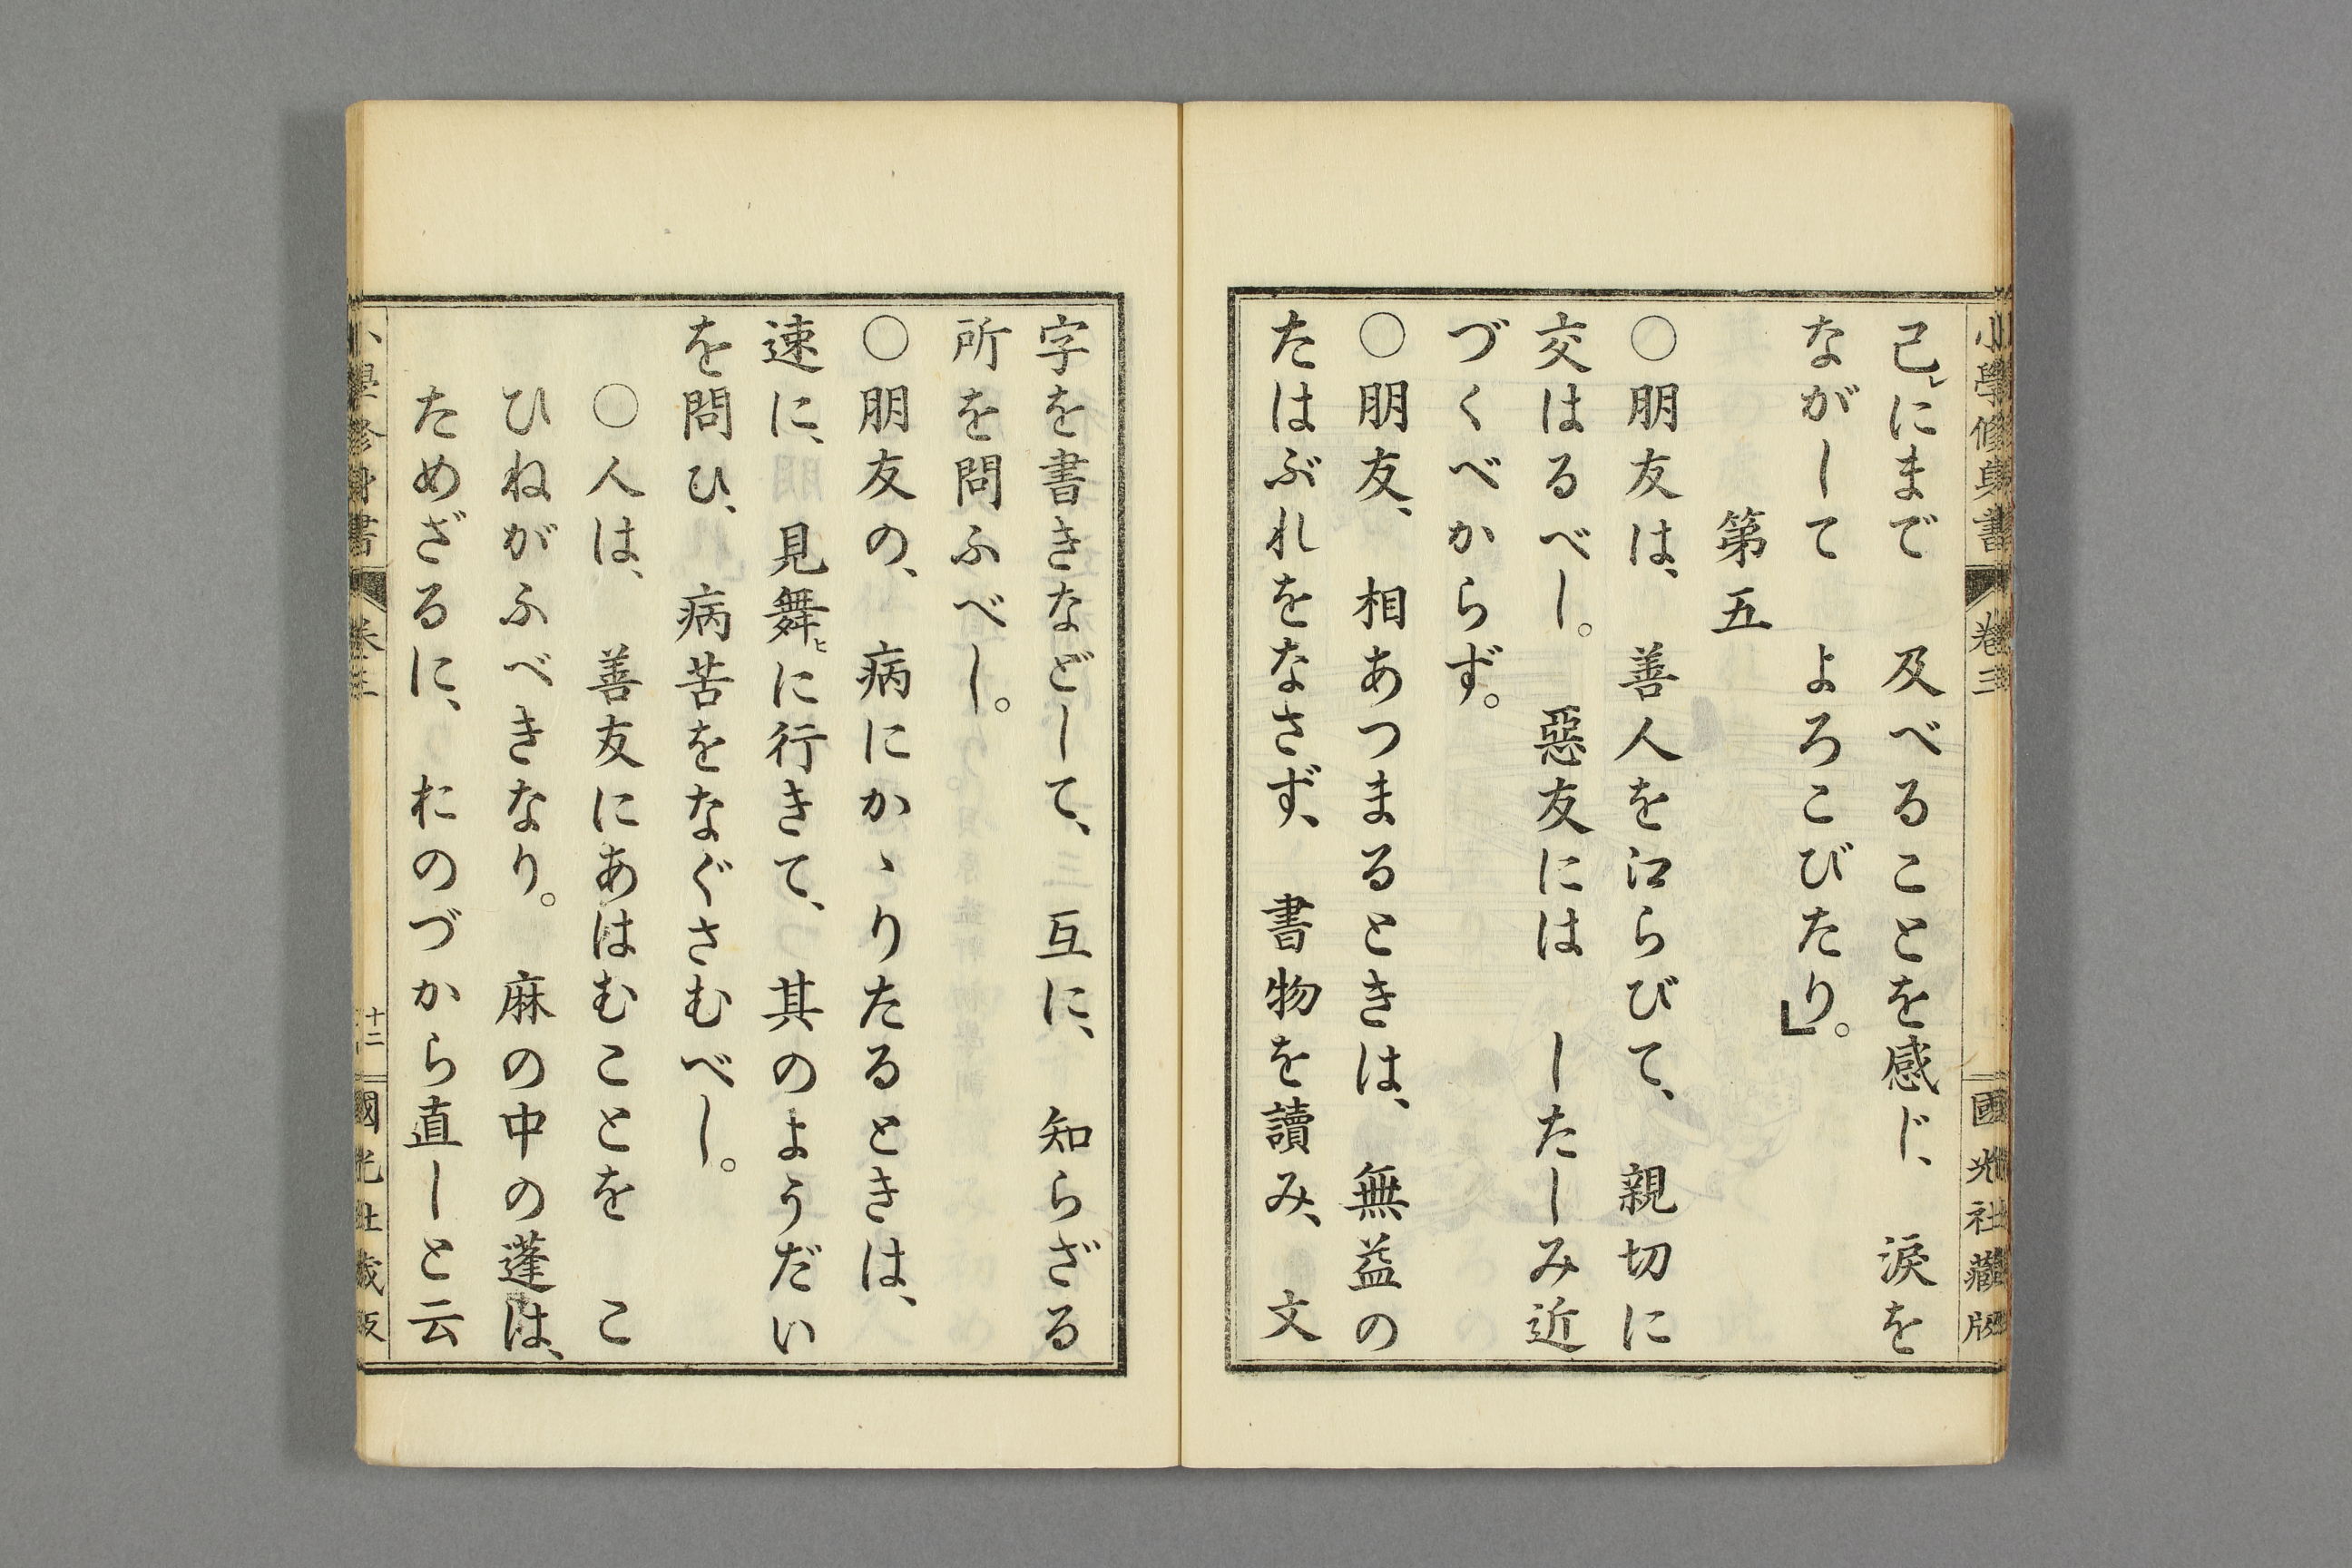 小學修身書 卷三 國光社藏版
己レにまで 及べることを感じ、 涙を
ながして よろこびたり。」
第五
〇朋友は、 善人を江らびて、 親切に
交はるべし。 惡友には したしみ近
づくべからず。
〇朋友、 相あつまるときは、 無益の
たはぶれをなさず、 書物を讀み、 文
字を書きなどして、 互に、 知らざる
所を問ふべし。
〇朋友の、 病にかゝりたるときは、
速に、 見舞ヒに行きて、 其のようだい
を問ひ、 病苦をなぐさむべし。
〇人は、 善友にあはむことを こ
ひねがふべきなり。 麻の中の蓬は、
ためざるに、 おのづから直しと云
小學修身書 卷三 十二 國光社藏版